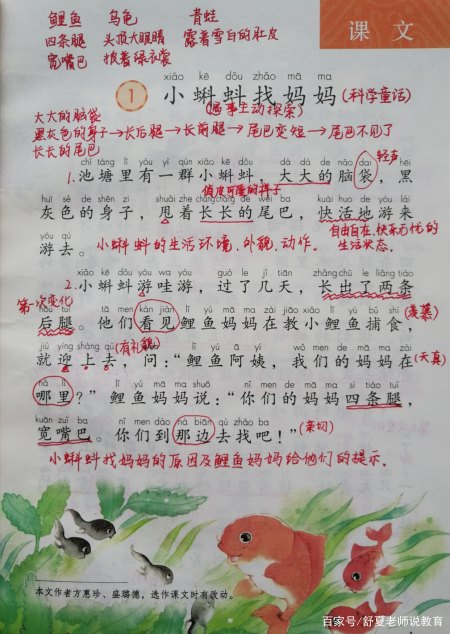 鲤鱼 乌龟 青蛙
四条腿 头顶大眼睛 露着雪白的肚皮
宽嘴巴 披着绿衣裳
课文
xiǎo kē dǒu zhǎo mā ma
1 小蝌蚪找妈妈(科学童话)
大大的脑袋 (遇事主动探索)
黑灰色的身子→长后腿→长前腿→尾巴变短→尾巴不见了
长长的尾巴
chí táng lǐ yǒu yì qún xiǎo kē dǒu dà dà de nǎo dai hēi 轻声
1.池塘里有一群小蝌蚪，大大的脑袋，黑
俏皮可爱的样子
huī sè de shēn zi shuǎi zhe cháng cháng de wěi ba kuài huó de yóu lái
灰色的身子，甩着长长的尾巴，快活地游来
yóu qù
游去。 小蝌蚪的生活环境、外貌、动作。 自由自在、快乐无忧的
生活状态。
xiǎo kē dǒu yóu wa yóu guò le jǐ tiān zhǎng chū le liǎng tiáo
2.小蝌蚪游哇游，过了几天，长出了两条
第一次变化
hòu tuǐ tā men kàn jiàn lǐ yú mā ma zài jiāo xiǎo lǐ yú bǔ shí
后腿。他们看见鲤鱼妈妈在教小鲤鱼捕食， (羡慕)
jiù yíng shàng qù (有礼貌) wèn lǐ yú ā yí wǒ men de mā ma zài
就迎上去，问：“鲤鱼阿姨，我们的妈妈在 (天真)
nǎ lǐ lǐ yú mā ma shuō nǐ men de mā ma sì tiáo tuǐ
哪里？”鲤鱼妈妈说：“你们的妈妈四条腿，
kuān zuǐ ba nǐ men dào nà biān qù zhǎo ba
宽嘴巴。你们到那边去找吧！” (亲切)
小蝌蚪找妈妈的原因及鲤鱼妈妈给他们的提示。
本文作者方惠珍、盛璐德，选作课文时有改动。
百家号/舒夏老师说教育